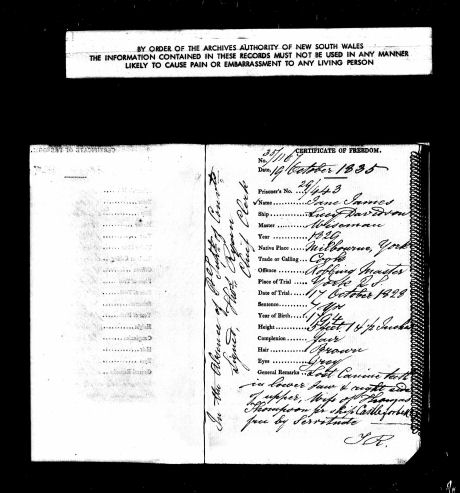 BY ORDER OF THE ARCHIVES AUTHORITY OF NEW SOUTH WALES
THE INFORMATION CONTAINED IN THESE RECORDS MUST NOT BE USED IN ANY MANNER
LIKELY TO CAUSE PAIN OR EMBARRASSMENT TO ANY LIVING PERSON
CERTIFICATE OF FREEDOM.
No. 35/1167
Date, 19 October 1835
Prisoner's No. 29/443
Name Jane James
Ship Lucy Davidson
Master Wiseman
Year 1829
Native Place Milbourne, York
Trade or Calling Cook
Offence Robbing Master
Place of Trial York
Date of Trial 17 October 1828
Sentence 7 Yrs
Year of Birth 1794
Height 5 feet 1 1/2 Inches
Complexion Fair
Hair Brown
Eyes Grey
General Remarks Lost Canine tooth
in lower Jaw & right side
of upper, Wife of Thomas
Thompson pr ship Castle Forbes
free by Servitude
In the Absence of Col Secty
Signed, Thos. Ryan
Chief Clerk